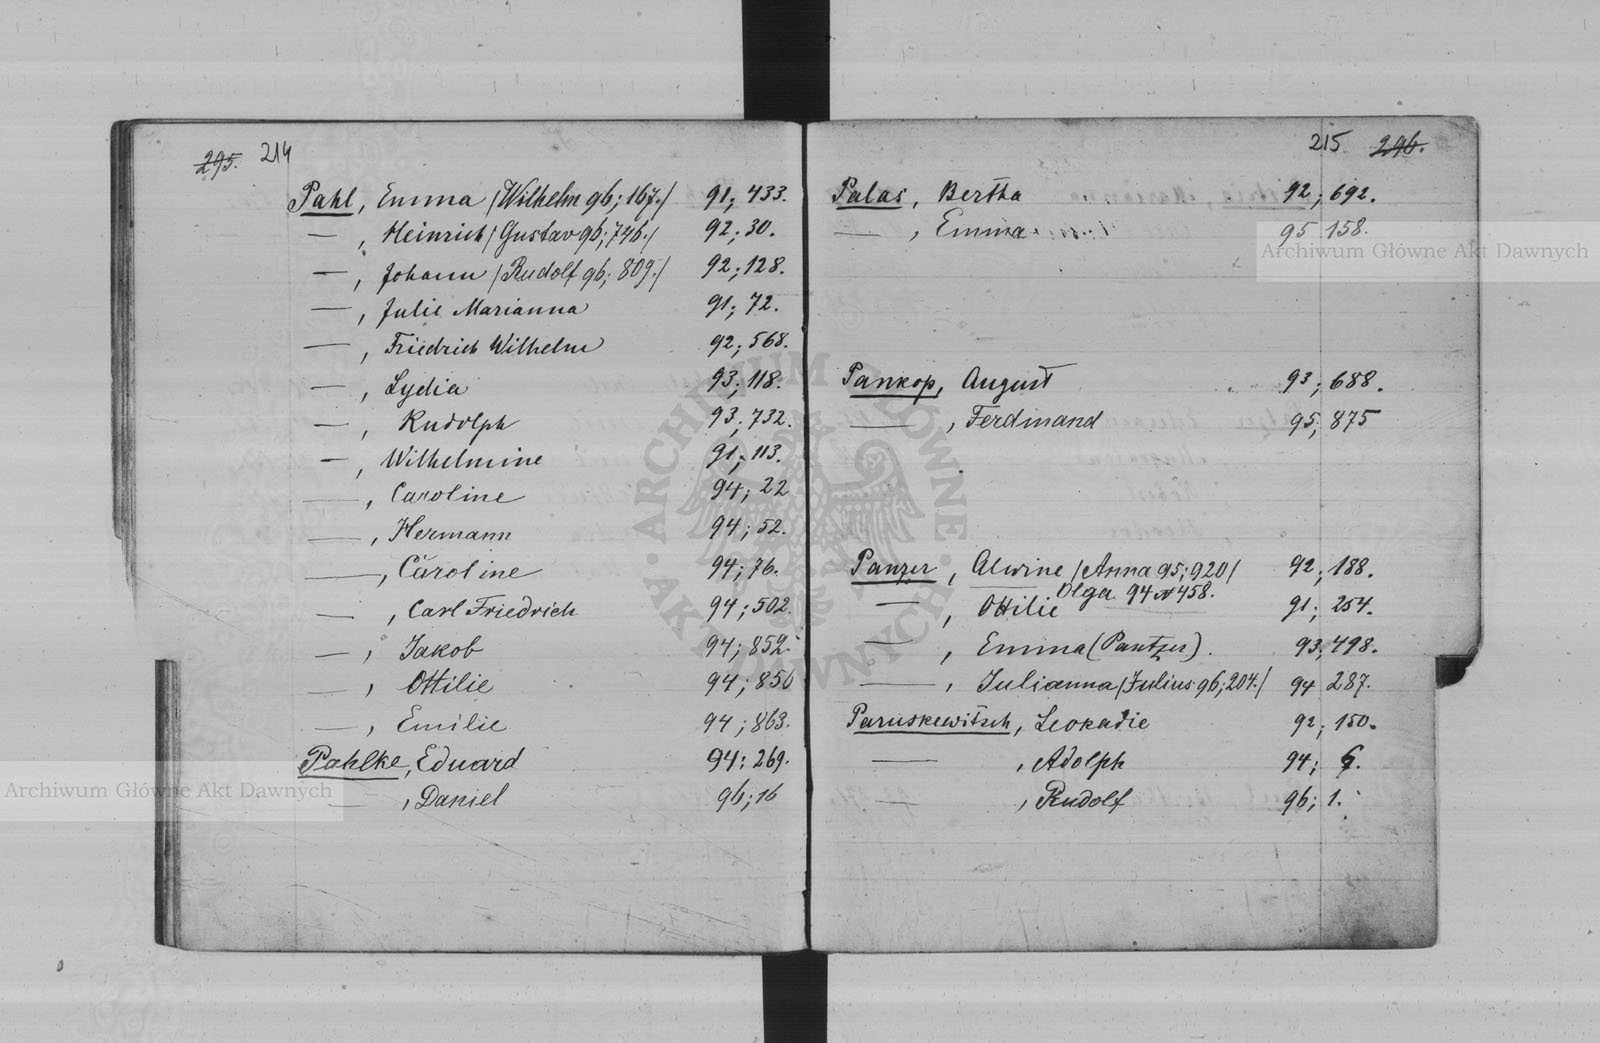 295. 214
Pahl, Emma /Wilhelm 96; 167./ 91; 433.
— , Heinrich /Gustav 96; 746./ 92; 30.
— , Johann /Rudolf 96; 809./ 92; 128.
— , Julie Marianna 91; 72.
— , Friedrich Wilhelm 92; 568.
— , Lydia 93; 118.
— , Rudolph 93; 732.
— , Wilhelmine 91; 113.
— , Caroline 94; 22
— , Hermann 94; 52.
— , Caroline 94; 76.
— , Carl Friedrich 94; 502.
— , Jakob 94; 852.
— , Ottilie 94; 856
— , Emilie 94; 863.
Pahlke, Eduard 94: 269.
— , Daniel 96; 16
215 296.
Palas, Bertha 92; 692.
— , Emma 95 158.
Pankop, August 93; 688.
— , Ferdinand 95; 875
Panzer, Alwine /Anna 95; 920/ 92; 188.
Olga 94 N 458.
— , Ottilie 91; 254.
— , Emma (Pantzer). 93; 498.
— , Julianna /Julius 96; 204./ 94 287.
Paruskewitsch, Leokadie 92; 150.
— , Adolph 94; 6.
— , Rudolf 96; 1.
Archiwum Główne Akt Dawnych
Archiwum Główne Akt Dawnych
ARCHIWUM GŁÓWNE AKT DAWNYCH